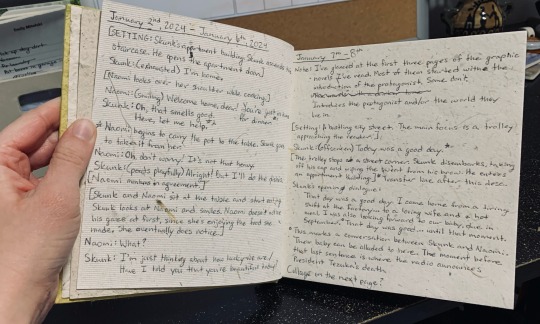 January 2nd 2024 - January 6th, 2024
[SETTING: Skunk's apartment building. Skunk ascends the
staircase. He opens the apartment door.]
Skunk: (exhausted) I'm home.
[Naomi looks over her shoulder while cooking]
Naomi: (smiling) Welcome home, dear! You're just in time
for dinner.
Skunk: Oh, that smells good.
Here, let me help.
Naomi begins to carry the pot to the table. Skunk goes
to take it from her.
Naomi: Oh, don't worry! It's not that heavy.
Skunk: (pouts playfully) Alright! But I'll do the dishes
[Naomi in agreement.]
[Skunk and Naomi sit at the table and start eating
Skunk looks at Naomi and smiles. Naomi doesn't notice
his gaze at first, since she's enjoying the food she
made. She eventually does notice]
Naomi: What?
Skunk: I'm just thinking about how lucky we are/
Have I told you that you're beautiful today?
January 7th - 8th
Note: I've glanced at the first three pages of the graphic
novels I've read. Most of them started with the
introduction of the protagonist. Some don't.
Introduces the protagonist and/or the world they
live in.
[Setting: A bustling city street. The main focus is a trolley
approaching the reader.]
Skunk: (offscreen) Today was a good day.
[The trolley stops at a street corner. Skunk disembarks, taking
off his cap and wiping the sweat from his brow. He enters
an apartment building] * Transfer line after this desc.
Skunk's opening dialogue:
That day was a good day. I came home from a tiring
shift at the factory to a loving wife and a hot
meal. I was also looking forward to our baby, due in
September. That day was good... until that moment.
This marks a conversation between Skunk and Naomi.
Their baby can be alluded to here. The moment before
that last sentence is where the radio announces
President Tezuka's death.
Collage in the next page?